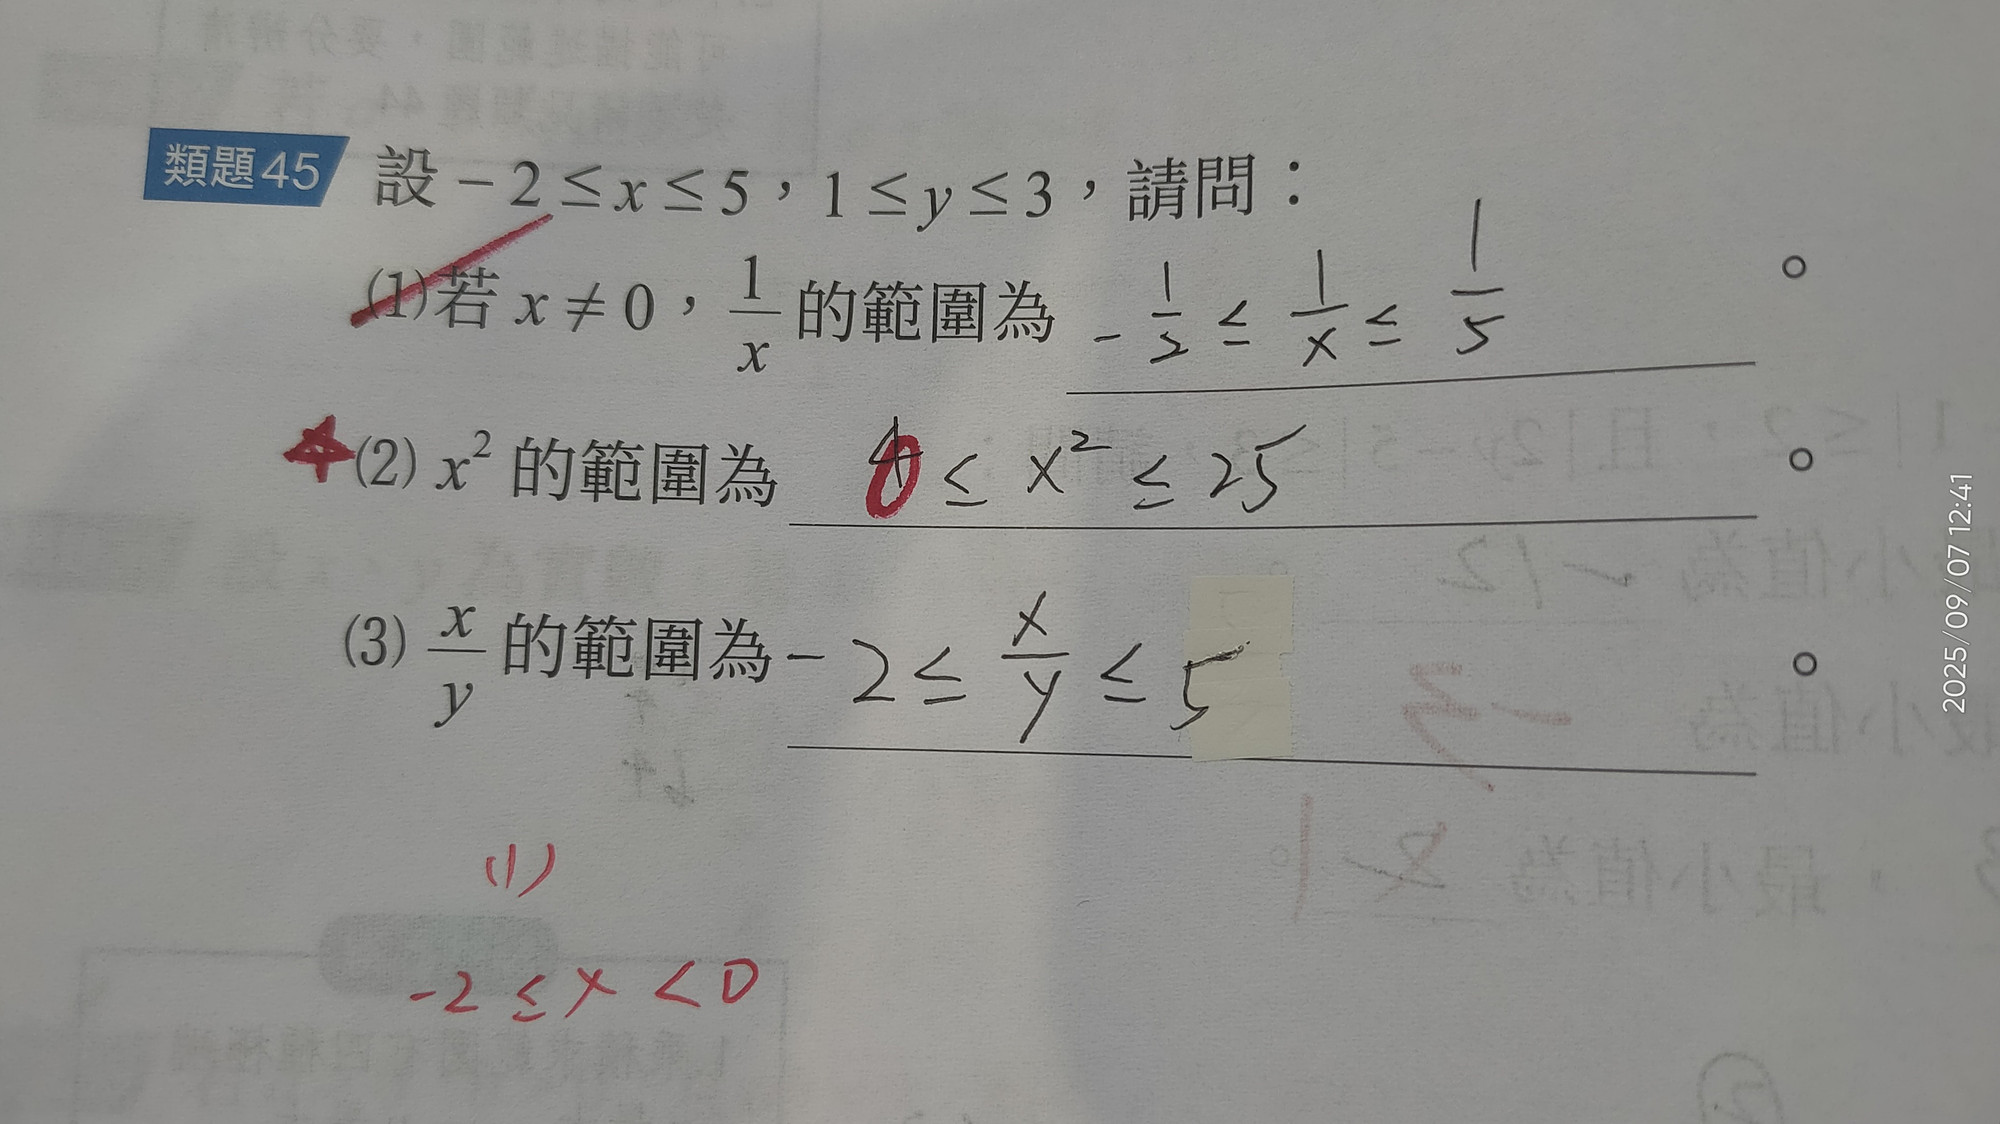 類題45 設 -2 ≤ x ≤ 5，1 ≤ y ≤ 3，請問：
(1)若 x ≠ 0，1/x 的範圍為 -1/2 ≤ 1/x ≤ 1/5。
(2) x² 的範圍為 0 ≤ x² ≤ 25。
(3) x/y 的範圍為 -2 ≤ x/y ≤ 5。
(1)
-2 ≤ x < 0
2025/09/07 12:41